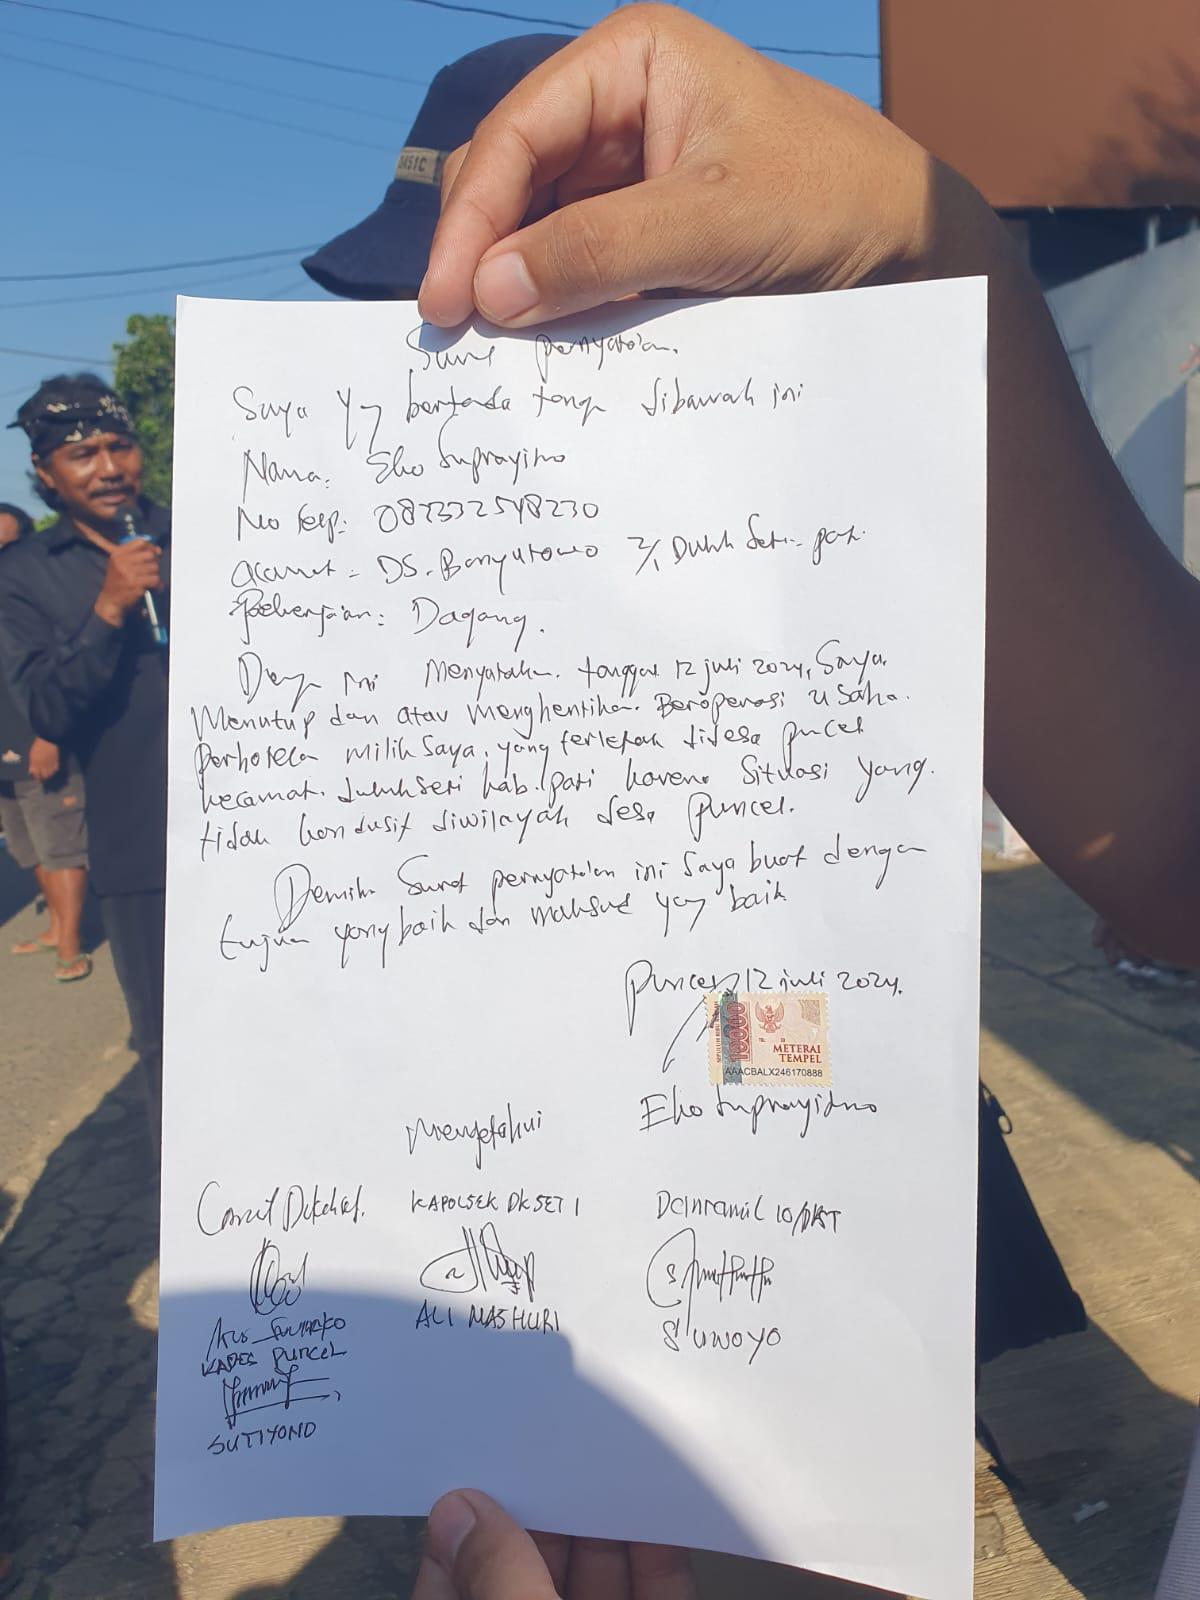 BASIC
Surat pernyataan.
Saya Yg bertada tanga dibawah ini
Nama: Eko Suprayitno
No telp: 082332548230
alamat: DS. Banyutowo 2/1 Dukuh Seti - pati
Pekerjaan: Dagang.
Denga ini Menyatakan. tanggal 12 juli 2024, Saya.
Menutup dan atau Menghentikan. Beroperasi usaha.
perhotelan milik saya, yang terletak didesa puncel
kecamat. dukuhseti kab. pati karena Situasi yang.
tidak kondusif diwilayah desa puncel.
Demikian Surat pernyataan ini Saya buat dengan
tujuan yang baik dan maksud yang baik
Puncel 12 juli 2024.
10000
METERAI
TEMPEL
AAACBALX246170888
Eko Suprayitno
Mengetahui
Camat KAPOLSEK DKSETI Danramil 10/DKT
ALI MASHURI
SUWOYO
KADES PUNCEL
SUTIYONO